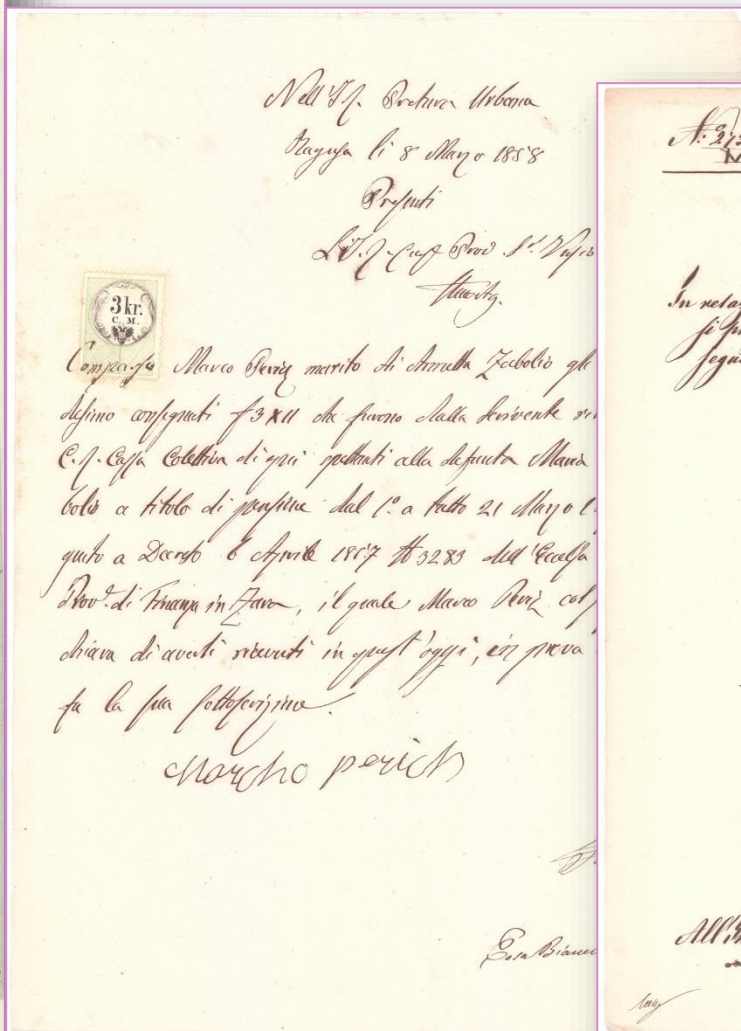 Nell'I. R. Pretura Urbana
Ragusa li 8 Marzo 1858
Presenti
L'I. R. Prov
3 kr.
C. M.
Comparso Marco marito di Annetta Zebolio gli
desimo consegnati f 3 XII che furono dalla scrivente
C. R. Cassa Colettiva di qui spettanti alla defunta Maria
bolio a titolo di pensione dal 1º a tutto 21 Marzo
guito a Decreto 6 Aprile 1857 # 3283 dell'Eccelsa
Prov. di Finanza in Zara, il quale Marco
chiara di averli ricevuti in quest'oggi, in prova
fa la sua sottoscrizione.
Marcho perich
Nº 273
In relaz
si pr
segu
All'I